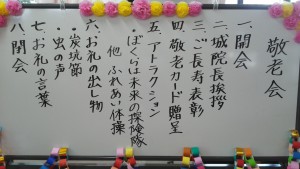 敬老会
一、開会
二、城院長挨拶
三、ご長寿表彰
四、敬老カード贈呈
五、アトラクション
・ぼくらは未来の探険隊
他 ふれあい体操
六、お礼の出し物
・炭坑節
・虫の声
七、お礼の言葉
八、閉会